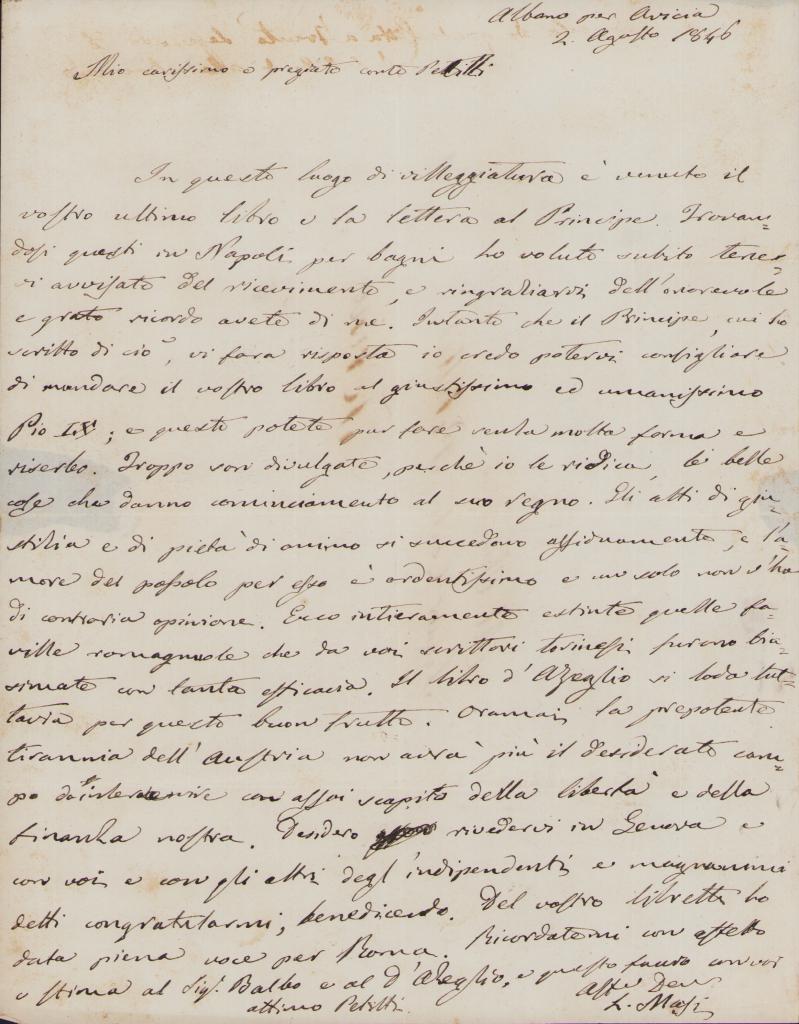 Albano per Aricia
2. Agosto 1846
Mio carissimo e pregiato conte Petitti
In questo luogo di villeggiatura è venuto il
vostro ultimo libro e la lettera al Principe. Trovan=
dosi questi in Napoli per bagni ho voluto subito tener=
vi avvisato del ricevimento, e ringraziarvi dell'onorevole
e grato ricordo avete di me. Instanto che il Principe, cui ho
scritto di ciò, vi farà risposta io credo potervi consigliare
di mandare il vostro libro al giustissimo ed umanissimo
Pio IX; e questo potete pur fare senza molta forma e
riserbo. Troppo son divulgate, perchè io le ridica, le belle
cose che danno cominciamento al suo regno. Gli atti di giu=
stizia e di pietà di animo si succedono assiduamente, e l'a=
more del popolo per esso è ardentissimo e un solo non v'ha
di contraria opinione. Ecco intieramente estinte quelle fa=
ville romagnole che da voi scrittori torinesi furono bia=
simate con tanta efficacia. Il libro d'Azeglio si loda tut=
tavia per questo buon frutto. Oramai la prepotente
tirannia dell'Austria non avrà più il desiderato cam=
po d'intervenire con assai scapito della libertà e della
finanza nostra. Desidero rivedervi in Genova e
con voi e con gli altri degl'indipendenti e magnanimi
detti congratularmi, benedicendo. Del vostro libretto ho
data piena voce per Roma. Ricordatemi con affetto
e stima al Sig.r Balbo e al D'Azeglio, e questo fauro con voi
attimo Petitti.
Aff.mo Dev.
L. Masi